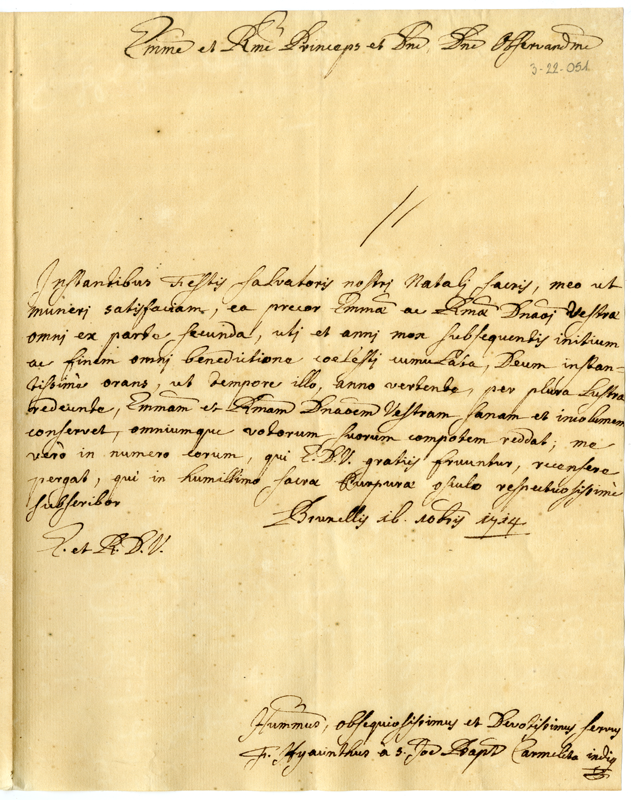 Emme et Rme Princeps et Dne, Dne Observandme
3-22.051
Instantibus Festis salvatoris nostri Natali sacris, meo ut
muneri satisfaciam, ea precor Emmæ ac Rmæ Dnaoi Vestræ
omni ex parte secunda, uti et anni mox subsequentis initium
ac finem omni benedictione coelesti cumulata, Deum instan-
tissimè orans, ut tempore illo, anno vertente, per plura Lustra
redeunte, Emmam et Rmam Dnaoem Vestram sanam et incolumem
conservet, omniumque votorum suorum compotem reddat; me
vero in numero eorum, qui E.D.V. gratiis fruuntur, recensere
pergat, qui in humillimo sacræ Purpuræ osculo respectuosissimè
subscribor
Bruxellis 16. 10bris 1714
E. et R. D. V.
Hummus, obsequiosissimus et Devotissimus servus
F. Hyacinthus à S. Joe Bapt Carmelita indig